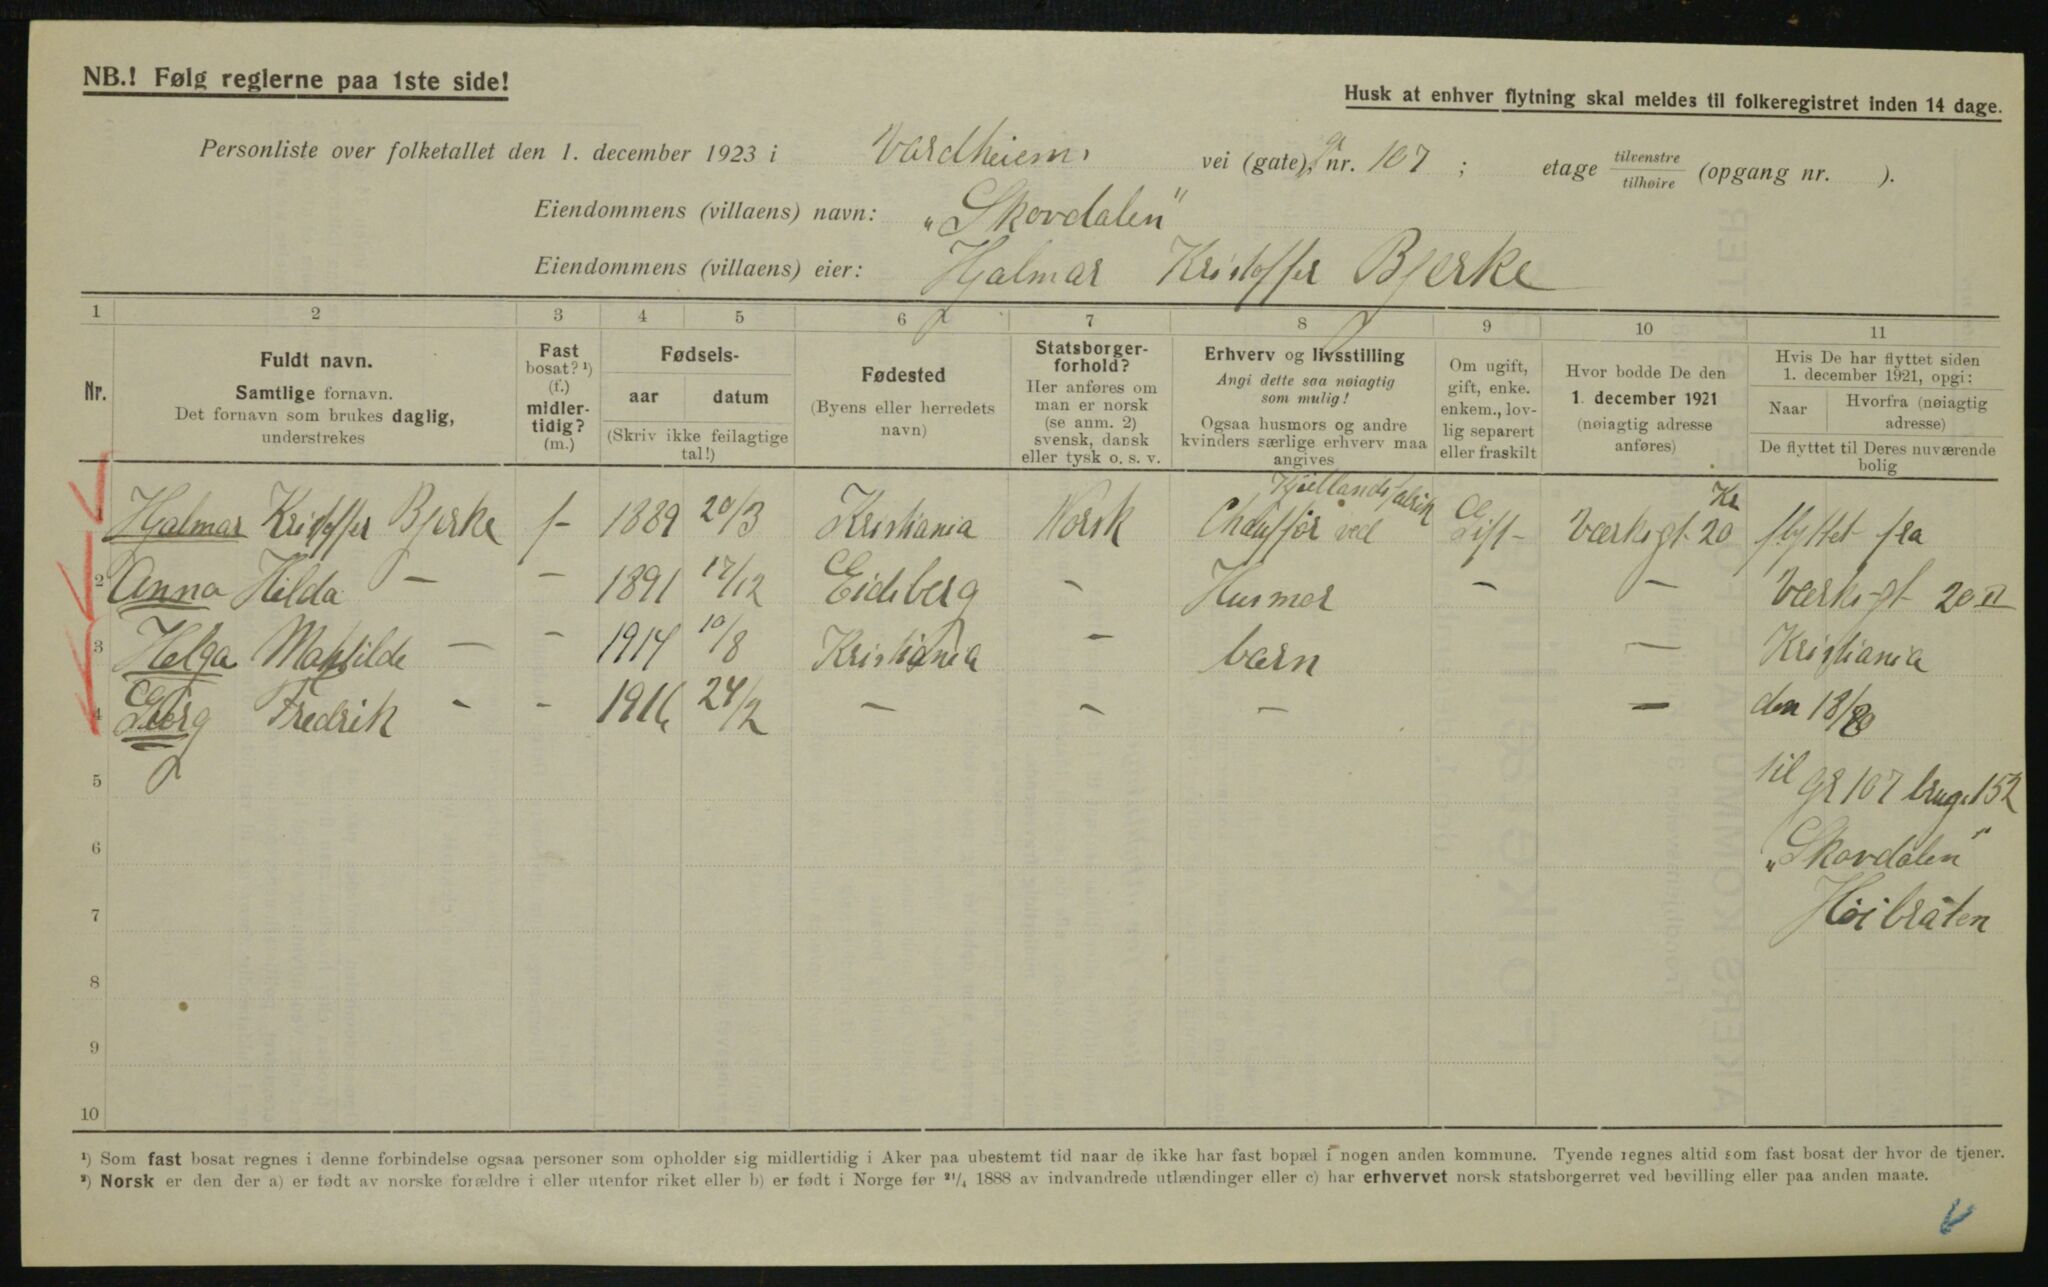 NB.! Følg reglerne paa 1ste side!
Husk at enhver flytning skal meldes til folkeregistret inden 14 dage.
Personliste over folketallet den 1. december 1923 i Vardheiem vei (gate) gr nr. 107 ; etage tilvenstre / tilhøire (opgang nr. ).
Eiendommens (villaens) navn: „Skovdalen"
Eiendommens (villaens) eier: Hjalmar Kristoffer Bjerke
1 2 3 4 5 6 7 8 9 10 11
Nr.
Fuldt navn.
Samtlige fornavn.
Det fornavn som brukes daglig,
understrekes
Fast
bosat? ¹)
(f.)
midler-
tidig?
(m.)
Fødsels-
aar datum
(Skriv ikke feilagtige
tal!)
Fødested
(Byens eller herredets
navn)
Statsborger-
forhold?
Her anføres om
man er norsk
(se anm. 2)
svensk, dansk
eller tysk o. s. v.
Erhverv og livsstilling
Angi dette saa nøiagtig
som mulig!
Ogsaa husmors og andre
kvinders særlige erhverv maa
angives
Om ugift,
gift, enke.
enkem., lov-
lig separert
eller fraskilt
Hvor bodde De den
1. december 1921
(nøiagtig adresse
anføres)
Hvis De har flyttet siden
1. december 1921, opgi:
Naar Hvorfra (nøiagtig
adresse)
De flyttet til Deres nuværende
bolig
1 Hjalmar Kristoffer Bjerke f- 1889 20/3 Kristiania Norsk Chauffør ved Kjellands fabrik Gift- Værksgt 20 Kr flyttet fra
2 Anna Hilda - - 1891 17/12 Eidsberg - Husmor - - Værksgt 20 II
3 Helga Mathilde - - 1914 10/8 Kristiania - barn - Kristiania
4 Georg Fredrik - - 1916 24/2 - - - - den 18/
5 til gr 107 brugs 152
6 „Skovdalen"
7 Høibråten
8
9
10
¹) Som fast bosat regnes i denne forbindelse ogsaa personer som opholder sig midlertidig i Aker paa ubestemt tid naar de ikke har fast bopæl i nogen anden kommune. Tyende regnes altid som fast bosat der hvor de tjener.
²) Norsk er den der a) er født av norske forældre i eller utenfor riket eller b) er født i Norge før ²¹/₄ 1888 av indvandrede utlændinger eller c) har erhvervet norsk statsborgerret ved bevilling eller paa anden maate.